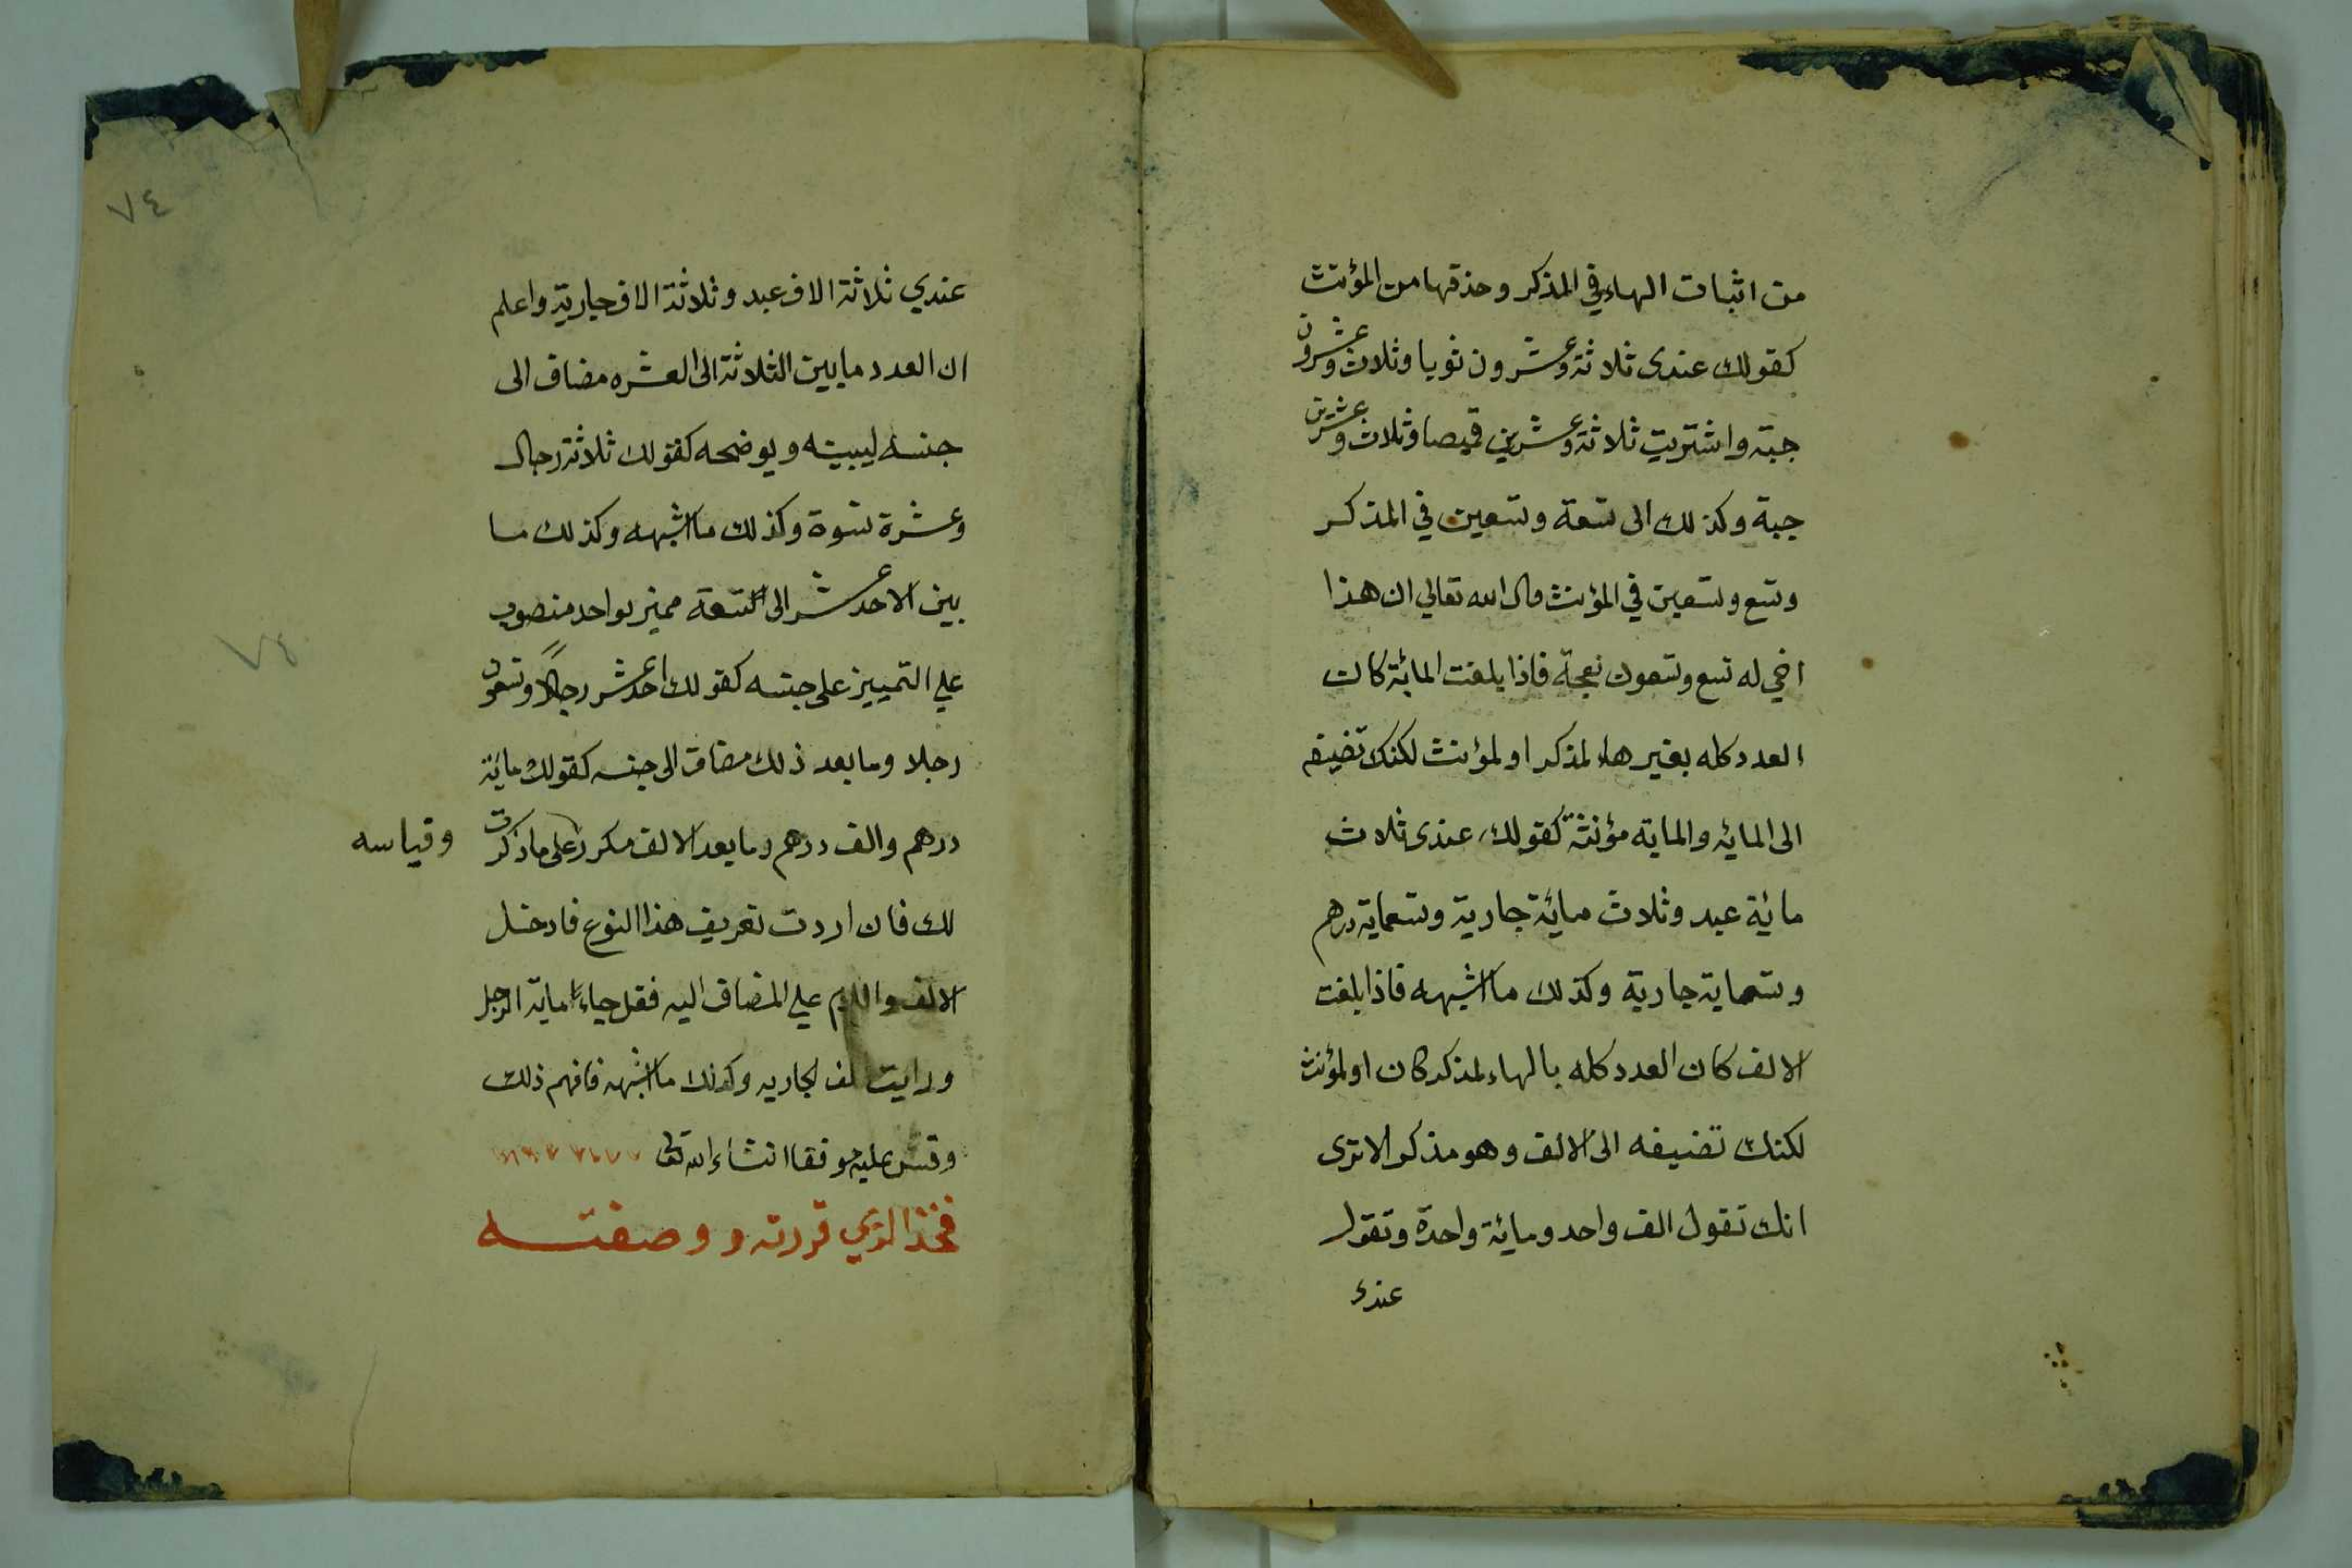 من اثبات الهاء في المذكر وحذفها من المؤنث
كقولك عندى ثلاثة وعشرون ثوبا وثلاث وعشرون
جبة واشتريت ثلاثة وعشرين قميصا وثلاث وعشرين
جبة وكذلك الى تسعة وتسعين في المذكر
وتسع وتسعين في المؤنث قال الله تعالي ان هذا
اخي له تسع وتسعون نعجة فاذا بلغت المائة كانت
العدد كله بغير هاء لمذكر او لمؤنث لكنك تضيفه
الى المائه والماية مؤنثة كقولك عندى ثلاث
مائة عبد وثلاث مائة جارية وتسعماية درهم
وتسعماية جارية وكذلك ما اشبهه فاذا بلغت
الالف كان العدد كله بالهاء لمذكر كان او لمؤنث
لكنك تضيفه الى الالف وهو مذكر الا ترى
انك تقول الف واحد ومائة واحدة وتقول
عندى
٧٤
عندي ثلاثة الاف عبد وثلاثة الاف جارية واعلم
ان العدد ما بين الثلاثة الى العشره مضاف الى
جنسه ليبينه ويوضحه كقولك ثلاثة رجال
وعشرة نسوة وكذلك ما اشبهه وكذلك ما
بين الاحد عشر الى التسعة مميز بواحد منصوب
علي التمييز على جنسه كقولك احد عشر رجلا وتسعون
٧٤
رجلا وما بعد ذلك مضاف الى جنسه كقولك مائة
درهم والف درهم وما بعد الالف مكرر على ما ذكرت
وقياسه
لك فان اردت تعريف هذا النوع فادخل
الالف واللام علي المضاف اليه فقل جاء ماية الرجل
ورايت الف الجاريه وكذلك ما اشبهه فافهم ذلك
وقس عليه موفقا انشاء الله تعالى
فخذ الذي قررته ووصفته